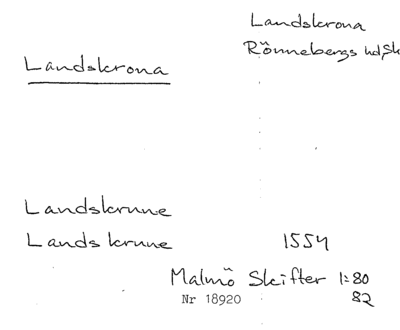 Landskrona
Rönnebergs hd, Sk
Landskrona
Landskrune
Landskrune 1554
Malmö Skifter 1:80
Nr 18920 82